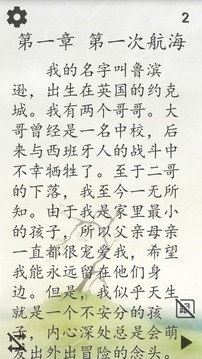 2
第一章 第一次航海
我的名字叫鲁滨
逊，出生在英国的约克
城。我有两个哥哥。大
哥曾经是一名中校，后
来与西班牙人的战斗中
不幸牺牲了。至于二哥
的下落，我至今一无所
知。由于我是家里最小
的孩子，所以父母亲亲
一直都很宠爱我，希望
我能永远留在他们身
边。但是，我似乎天生
就是一个不安分的孩
子，内心深处总是会萌
发出外出冒险的念头。